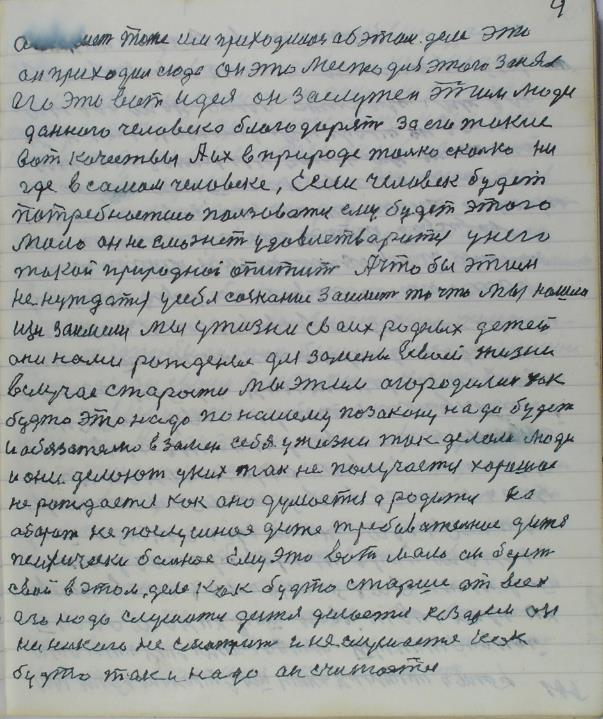 9
тоже им приходилося об этом деле это
он приходил сюда он это место для этого занял
его это вот идея он заслужен этим люди
данного человека благодарят за его такие
вот качествы А их в природе только сколко ни
где в самом человеке, Если человек будет
потребностию ползовати ему будет этого
мало он не сможет удовлетварити у него
такой природной апитит А что бы этим
не нуждатся у себя сознание займит то что мы нашли
мы у жизни своих родных детей
они нами рожденые для замены своей жизни
в случае старости мы этим огородилис как
будто это надо по нашему по закону надо будет
и обязателно в замен себя у жизни так делали люди
и они делоют у них так не получается хорошое
не рождается как оно думается а родити на
аборот не послушное дитя требователное дитя
психически болное Ему это вот мало он берет
свой в этом деле как будто старше от всех
его надо слушати дитя делается он
ни на кого не смотрит и не слушается как
будто так и надо он считается